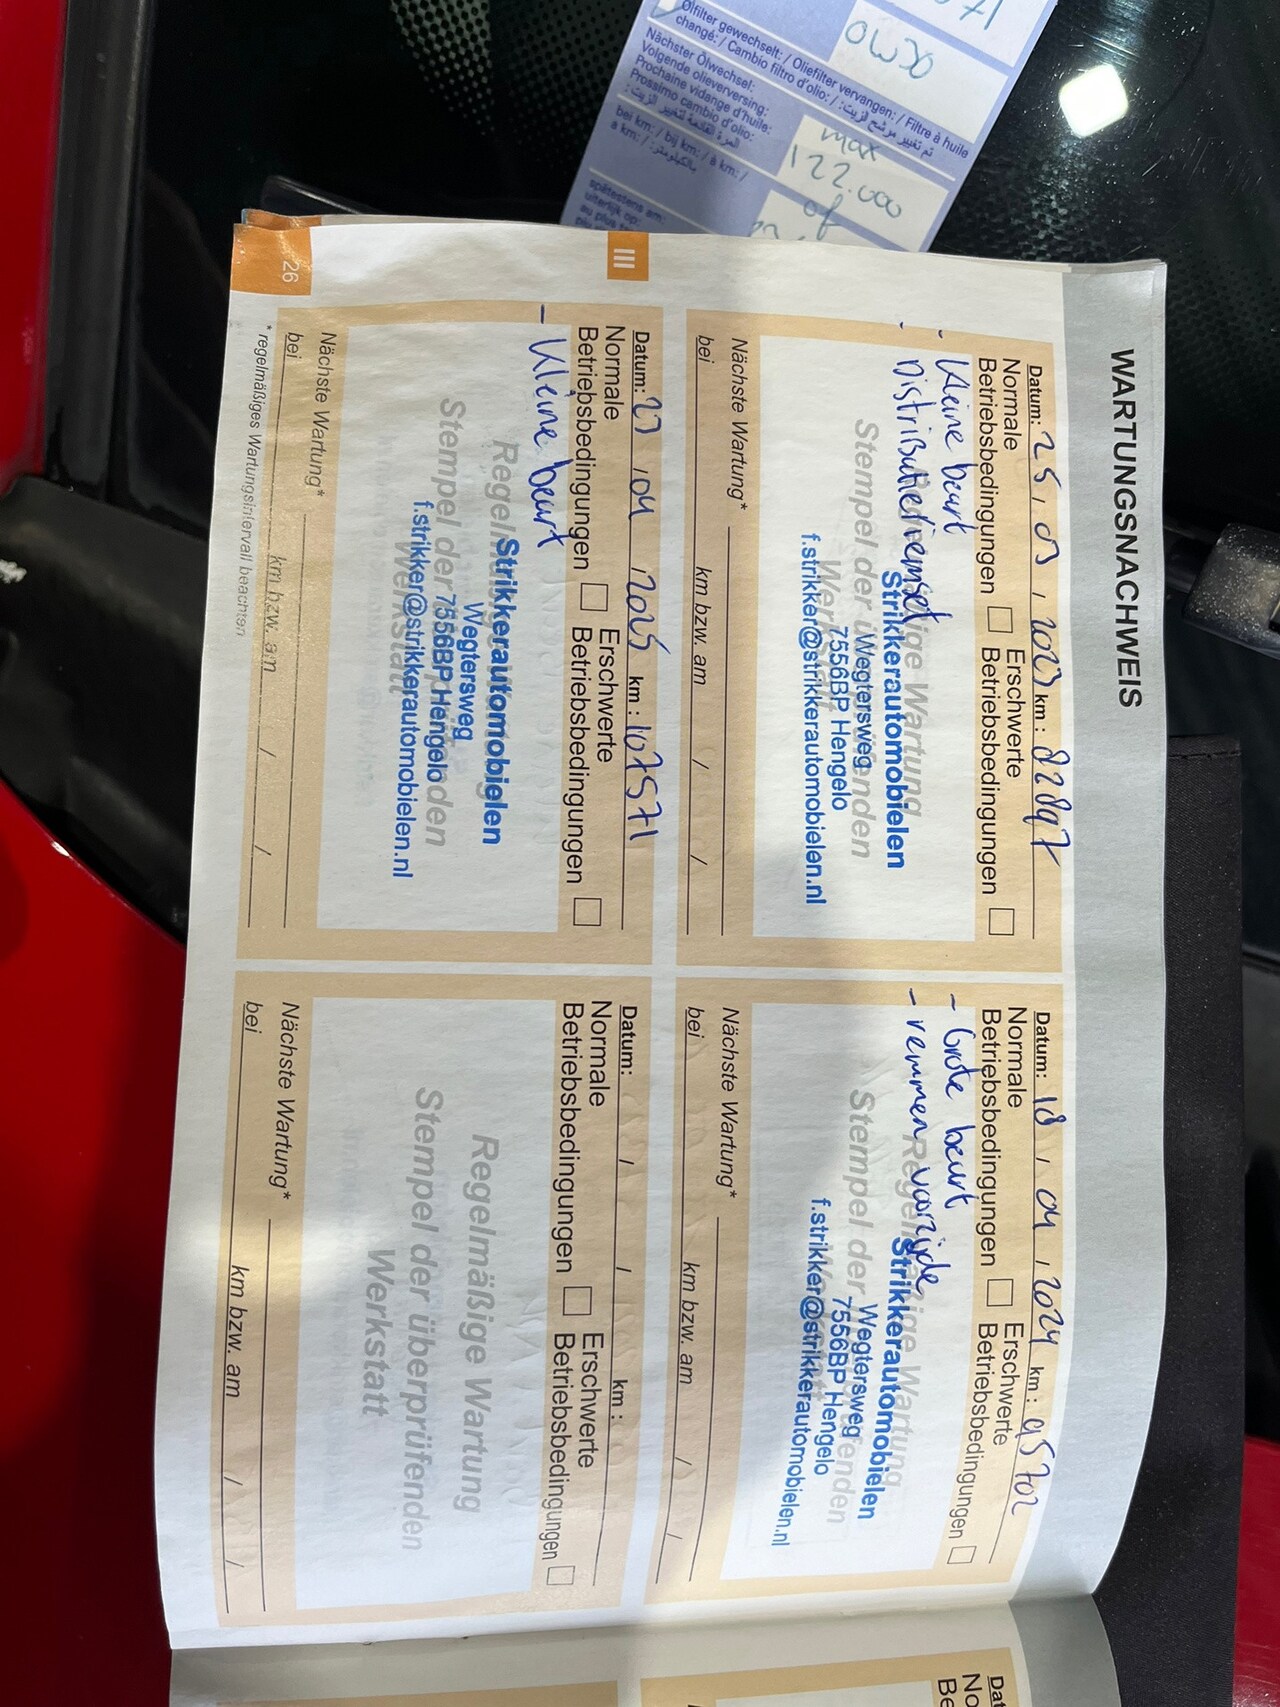 Ölfilter gewechselt: / Oliefilter vervangen: / Filtre à huile
changé: / Cambio filtro d'olio: / تم تغيير مرشح الزيت:
OW30
Nächster Ölwechsel:
Volgende olieverversing:
Prochaine vidange d'huile:
Prossimo cambio d'olio:
المرة القادمة لتغيير الزيت:
bei km: / bij km: / à km: /
a km: / بالكيلومتر:
max
122.000
of
spätestens am:
uiterlijk op:
au plus
WARTUNGSNACHWEIS
Datum: 25 / 03 / 2023 km: 82897
Normale Betriebsbedingungen
Erschwerte Betriebsbedingungen
- Kleine beurt
- Distributieriemset
Stempel der
Strikkerautomobielen
Wegtersweg
7556BP Hengelo
f.strikker@strikkerautomobielen.nl
Nächste Wartung*
bei km bzw. am / /
Datum: 18 / 04 / 2024 km: 95702
Normale Betriebsbedingungen
Erschwerte Betriebsbedingungen
- Grote beurt
- remmen voorzijde
Stempel der
Strikkerautomobielen
Wegtersweg
7556BP Hengelo
f.strikker@strikkerautomobielen.nl
Nächste Wartung*
bei km bzw. am / /
III
Datum: 23 / 04 / 2025 km: 107571
Normale Betriebsbedingungen
Erschwerte Betriebsbedingungen
- Kleine beurt
Stempel der
Strikkerautomobielen
Wegtersweg
7556BP Hengelo
f.strikker@strikkerautomobielen.nl
Nächste Wartung*
bei km bzw. am / /
Datum: / / km:
Normale Betriebsbedingungen
Erschwerte Betriebsbedingungen
Regelmäßige Wartung
Stempel der überprüfenden
Werkstatt
Nächste Wartung*
bei km bzw. am / /
*regelmäßiges Wartungsintervall beachten
26